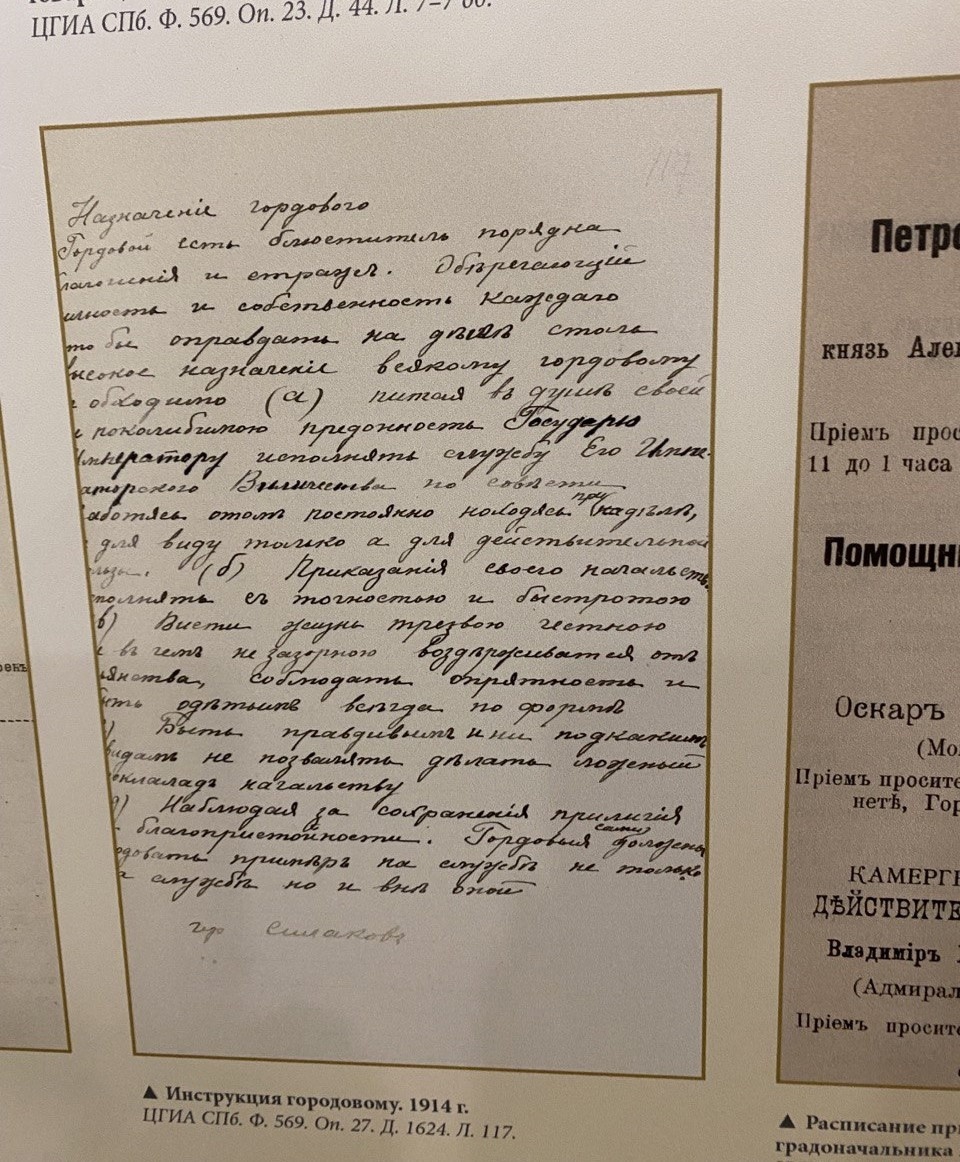 ЦГИА СПб. Ф. 569. Оп. 23. Д. 44. Л. 7–7 об.
117
Назначеніе гордового
Гордовой есть блюститель порядка
благочинія и стражъ. Обѣрегающій
личность и собственность каждаго
то бы оправдать на дѣлѣ столь
высокое назначеніе всякому гордовому
обходимо (а) питая въ душѣ своей
поколибимою предонность Государю
Императору исполнять службу Его Импе-
аторского Величества по совѣсти
аботясь отомъ постоянно находясь при кадѣлѣ,
для виду только а для действительной
льзы. (б) Приказанія своего начальств.
полнять съ точностью и быстротою
в) Вести жизнь трезвою честною
въ чемъ незазорною воздѣрживатся отъ
янства, соблюдать опрятность и
ыть одѣтымъ всегда по формѣ
Быть правдивымъ и ни подкакимъ
видамъ не позволять дѣлать ложный
окладъ начальству
д) Наблюдая за сохранія прилигія
благопристойности. Гордовыя сами должены
одовать примѣръ на службѣ не только
а службѣ но и внѣ оной
гор Симаковъ
▲ Инструкция городовому. 1914 г.
ЦГИА СПб. Ф. 569. Оп. 27. Д. 1624. Л. 117.
Петро
князь Алек
Пріемъ прос
11 до 1 часа
Помощни
Оскаръ
(Мо
Пріемъ просите
нетѣ, Гор
КАМЕРГЕ
ДѢЙСТВИТЕ
Владиміръ
(Адмирал
Пріемъ просите
▲ Расписание пр
градоначальника